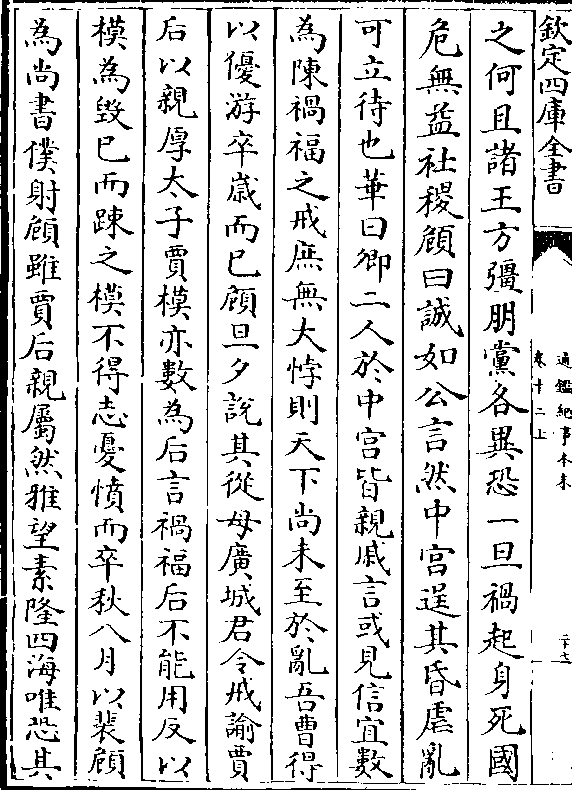 欽定四庫全書
通鑑紀事本末
卷十二上
之何且諸王方彊朋黨各異恐一旦禍起身死國
危無益社稷頠曰誠如公言然中宫逞其昏虐亂
可立待也華曰卿二人於中宫皆親戚言或見信宜數
為陳禍福之戒庶無大悖則天下尚未至於亂吾曹得
以優游卒嵗而已頠旦夕說其從母廣城君令戒諭賈
后以親厚太子賈模亦數為后言禍福后不能用反以
模為毁已而踈之模不得志憂憤而卒秋八月以裴頠
為尚書僕射頠雖賈后親屬然雅望素隆四海唯恐其